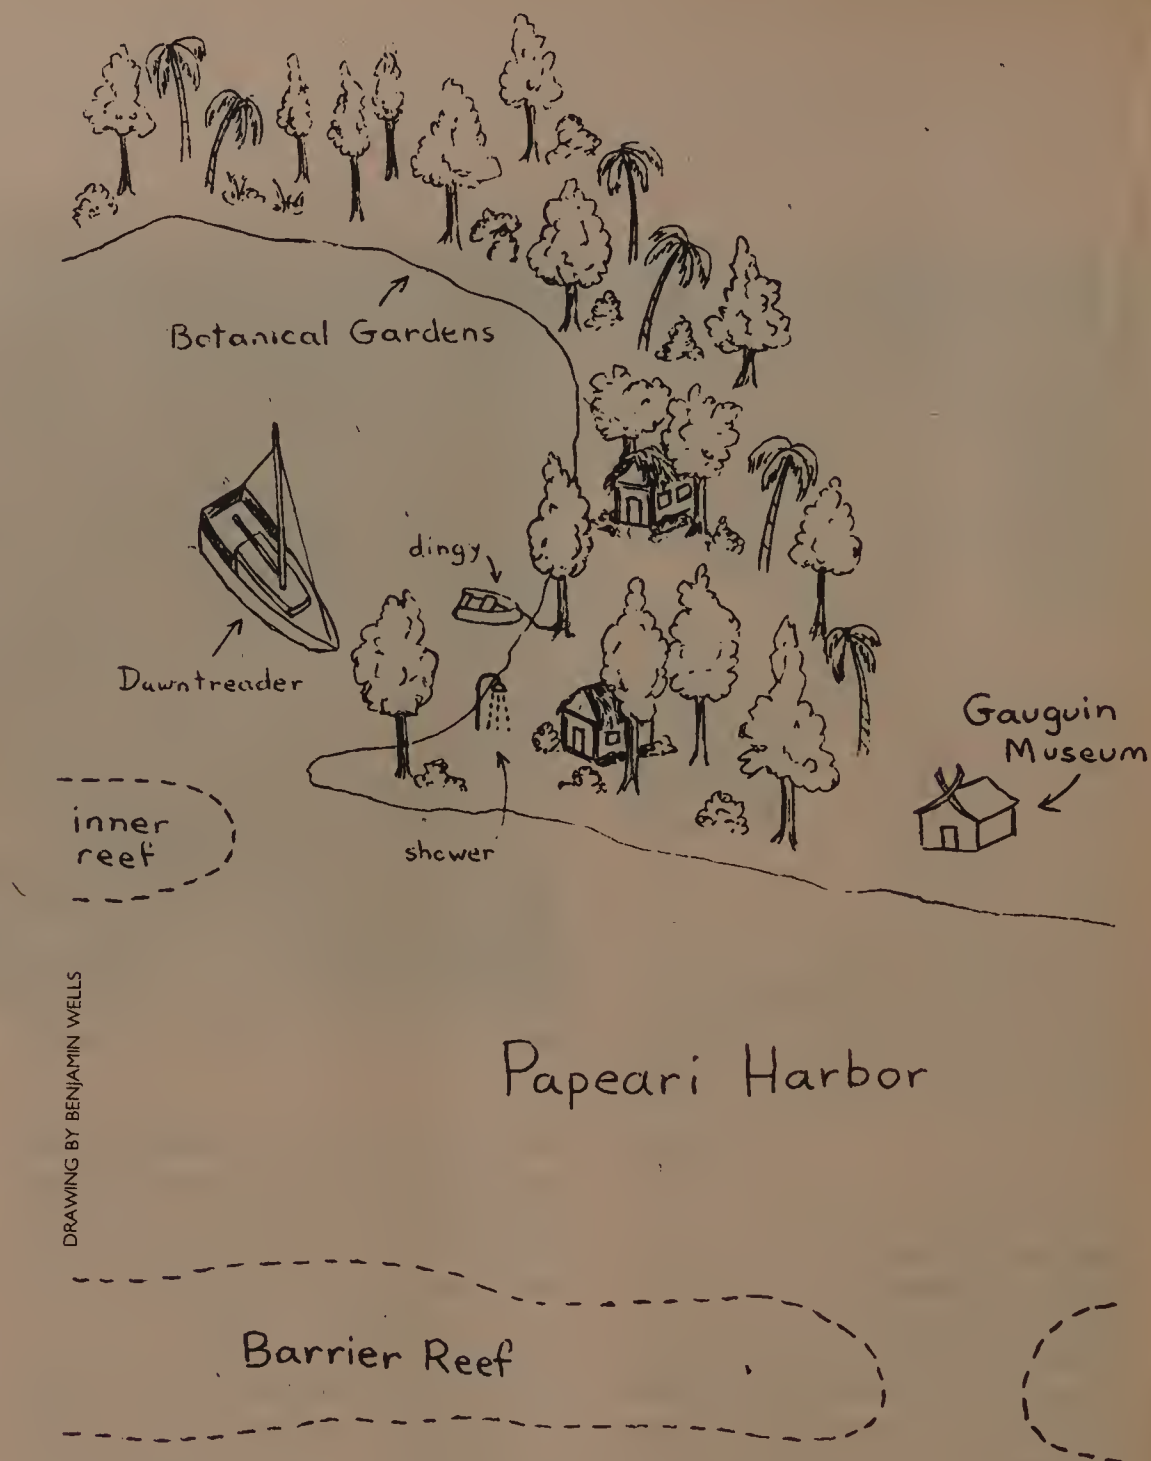 Botanical Gardens
dingy
Dawntreader
Gauguin
Museum
inner
reef
shower
DRAWING BY BENJAMIN WELLS
Papeari Harbor
Barrier Reef